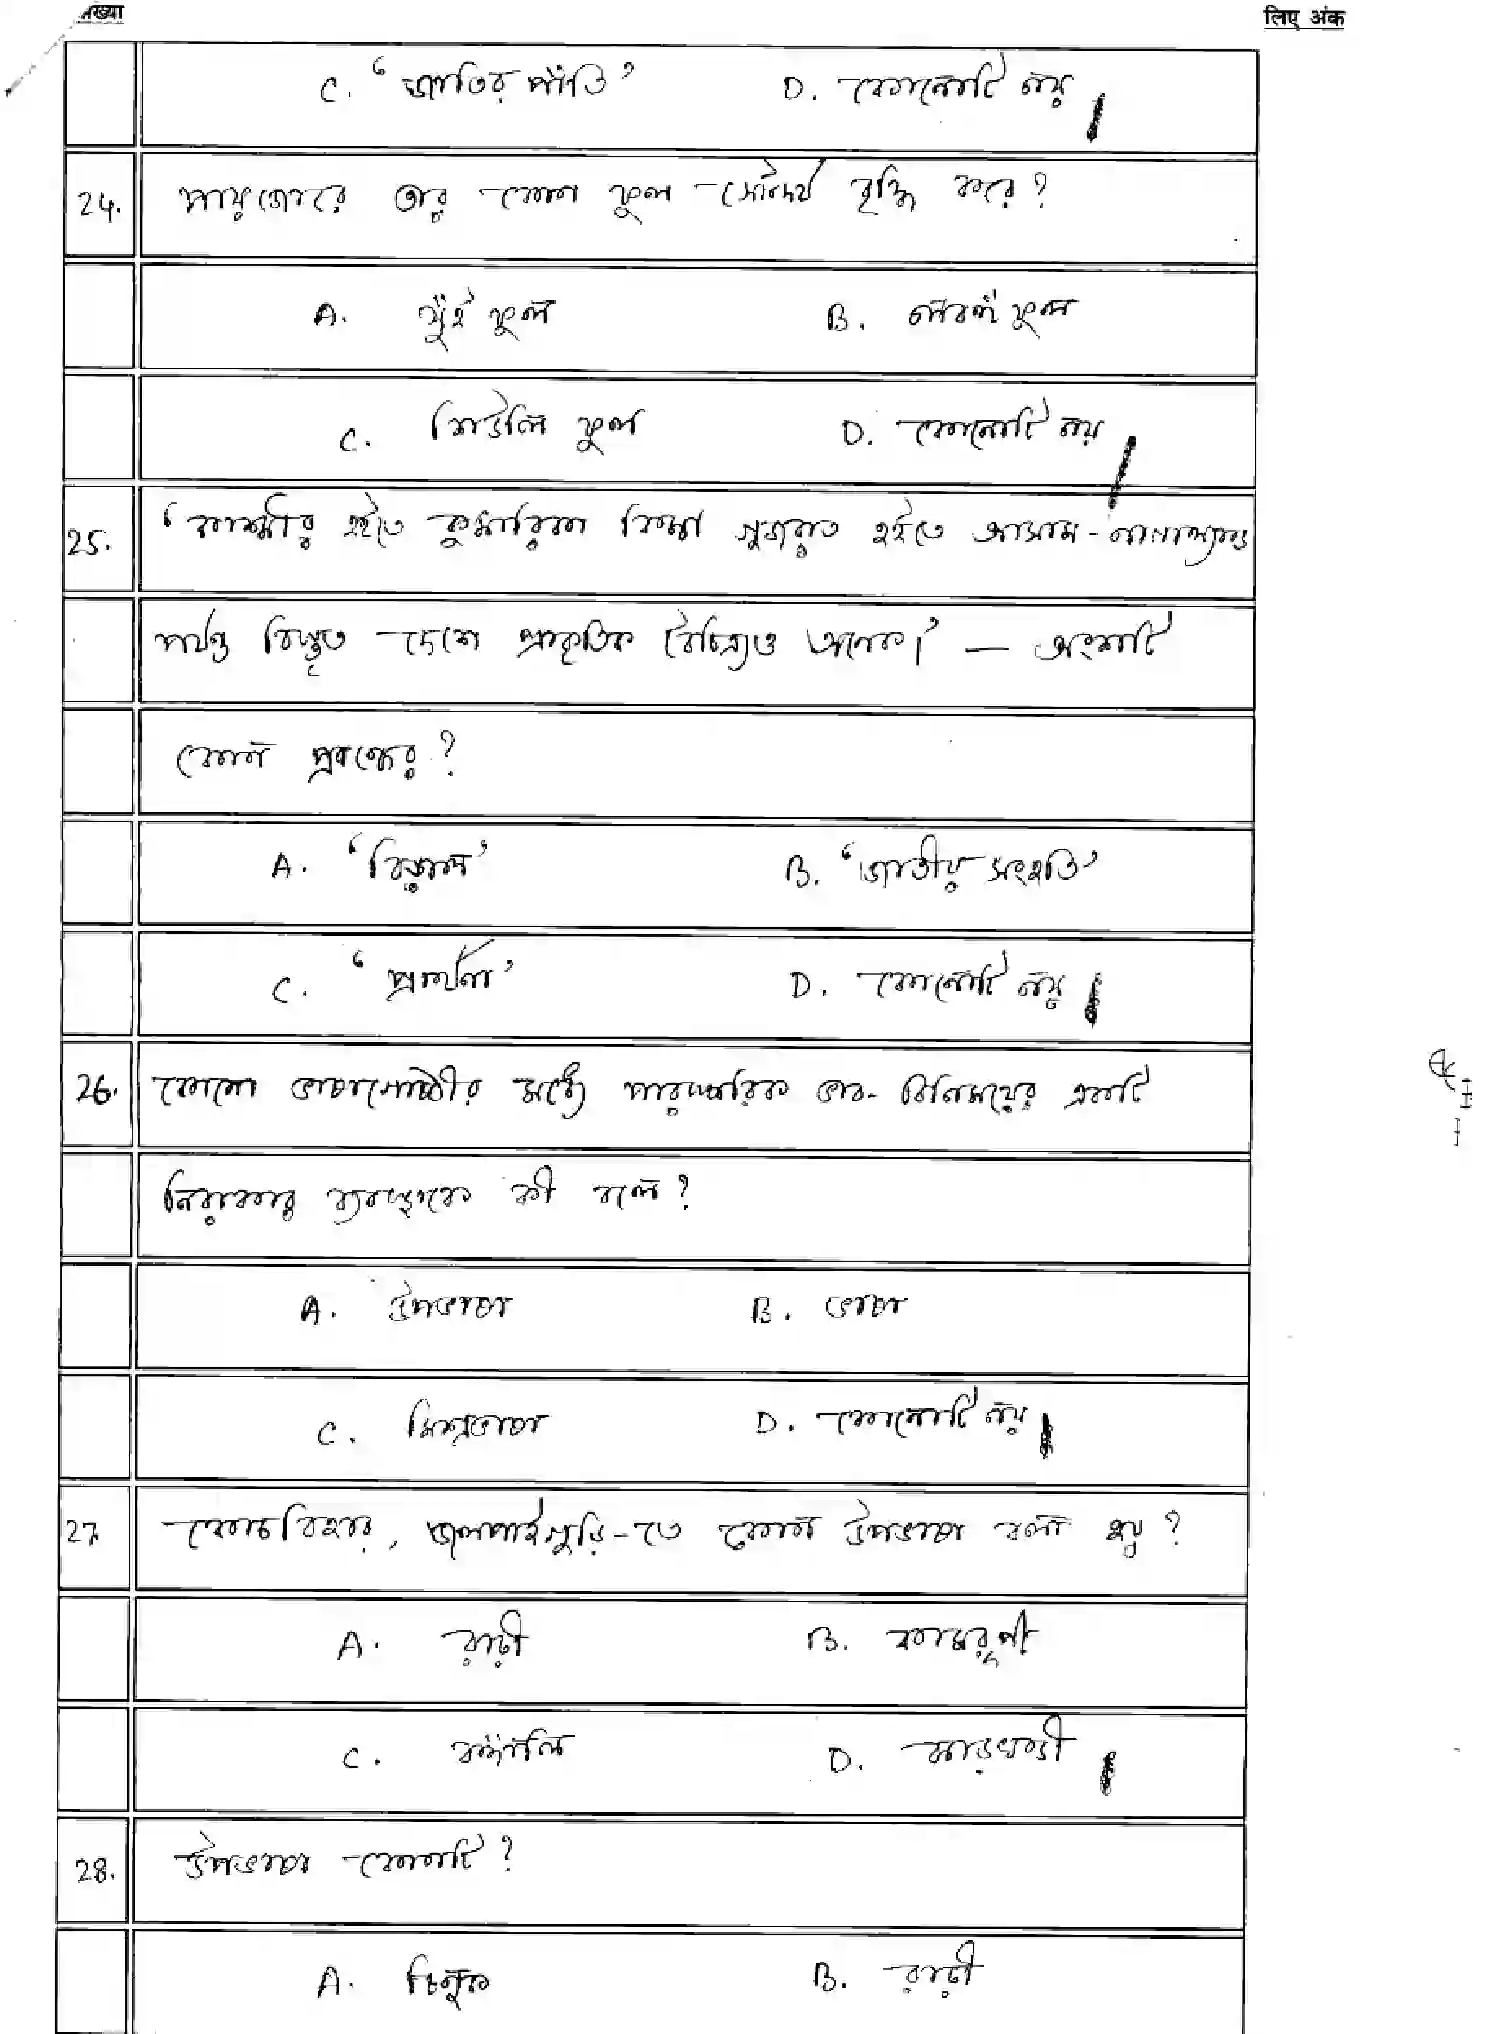 संख्या
लिए अंक
C. ‘জাতির পাঁতি’ D. কোনোটি নয়
24. পায়জোরে তার কোন ফুল সৌন্দর্য বৃদ্ধি করে?
A. যুঁই ফুল B. লবঙ্গ ফুল
C. শিউলি ফুল D. কোনোটি নয়
25. ‘কাশ্মীর হইতে কুমারিকা কিম্বা গুজরাত হইতে আসাম-নাগাল্যাণ্ড
পর্যন্ত বিস্তৃত দেশে প্রাকৃতিক বৈচিত্র্যও অনেক।’ — অংশটি
কোন প্রবন্ধের?
A. ‘বিড়াল’ B. ‘জাতীয় সংহতি’
C. ‘প্রার্থনা’ D. কোনোটি নয়
26. কোনো ভাষাগোষ্ঠীর মধ্যে পারস্পরিক ভাব-বিনিময়ের একটি
নিরাকার ব্যবস্থাকে কী বলে?
A. উপভাষা B. ভাষা
C. মিশ্রভাষা D. কোনোটি নয়
27. কোচবিহার, জলপাইগুড়ি-তে কোন উপভাষা বলা হয়?
A. রাঢ়ী B. কামরূপী
C. বঙ্গালি D. ঝাড়খণ্ডী
28. উপভাষা কোনটি?
A. B. রাঢ়ী